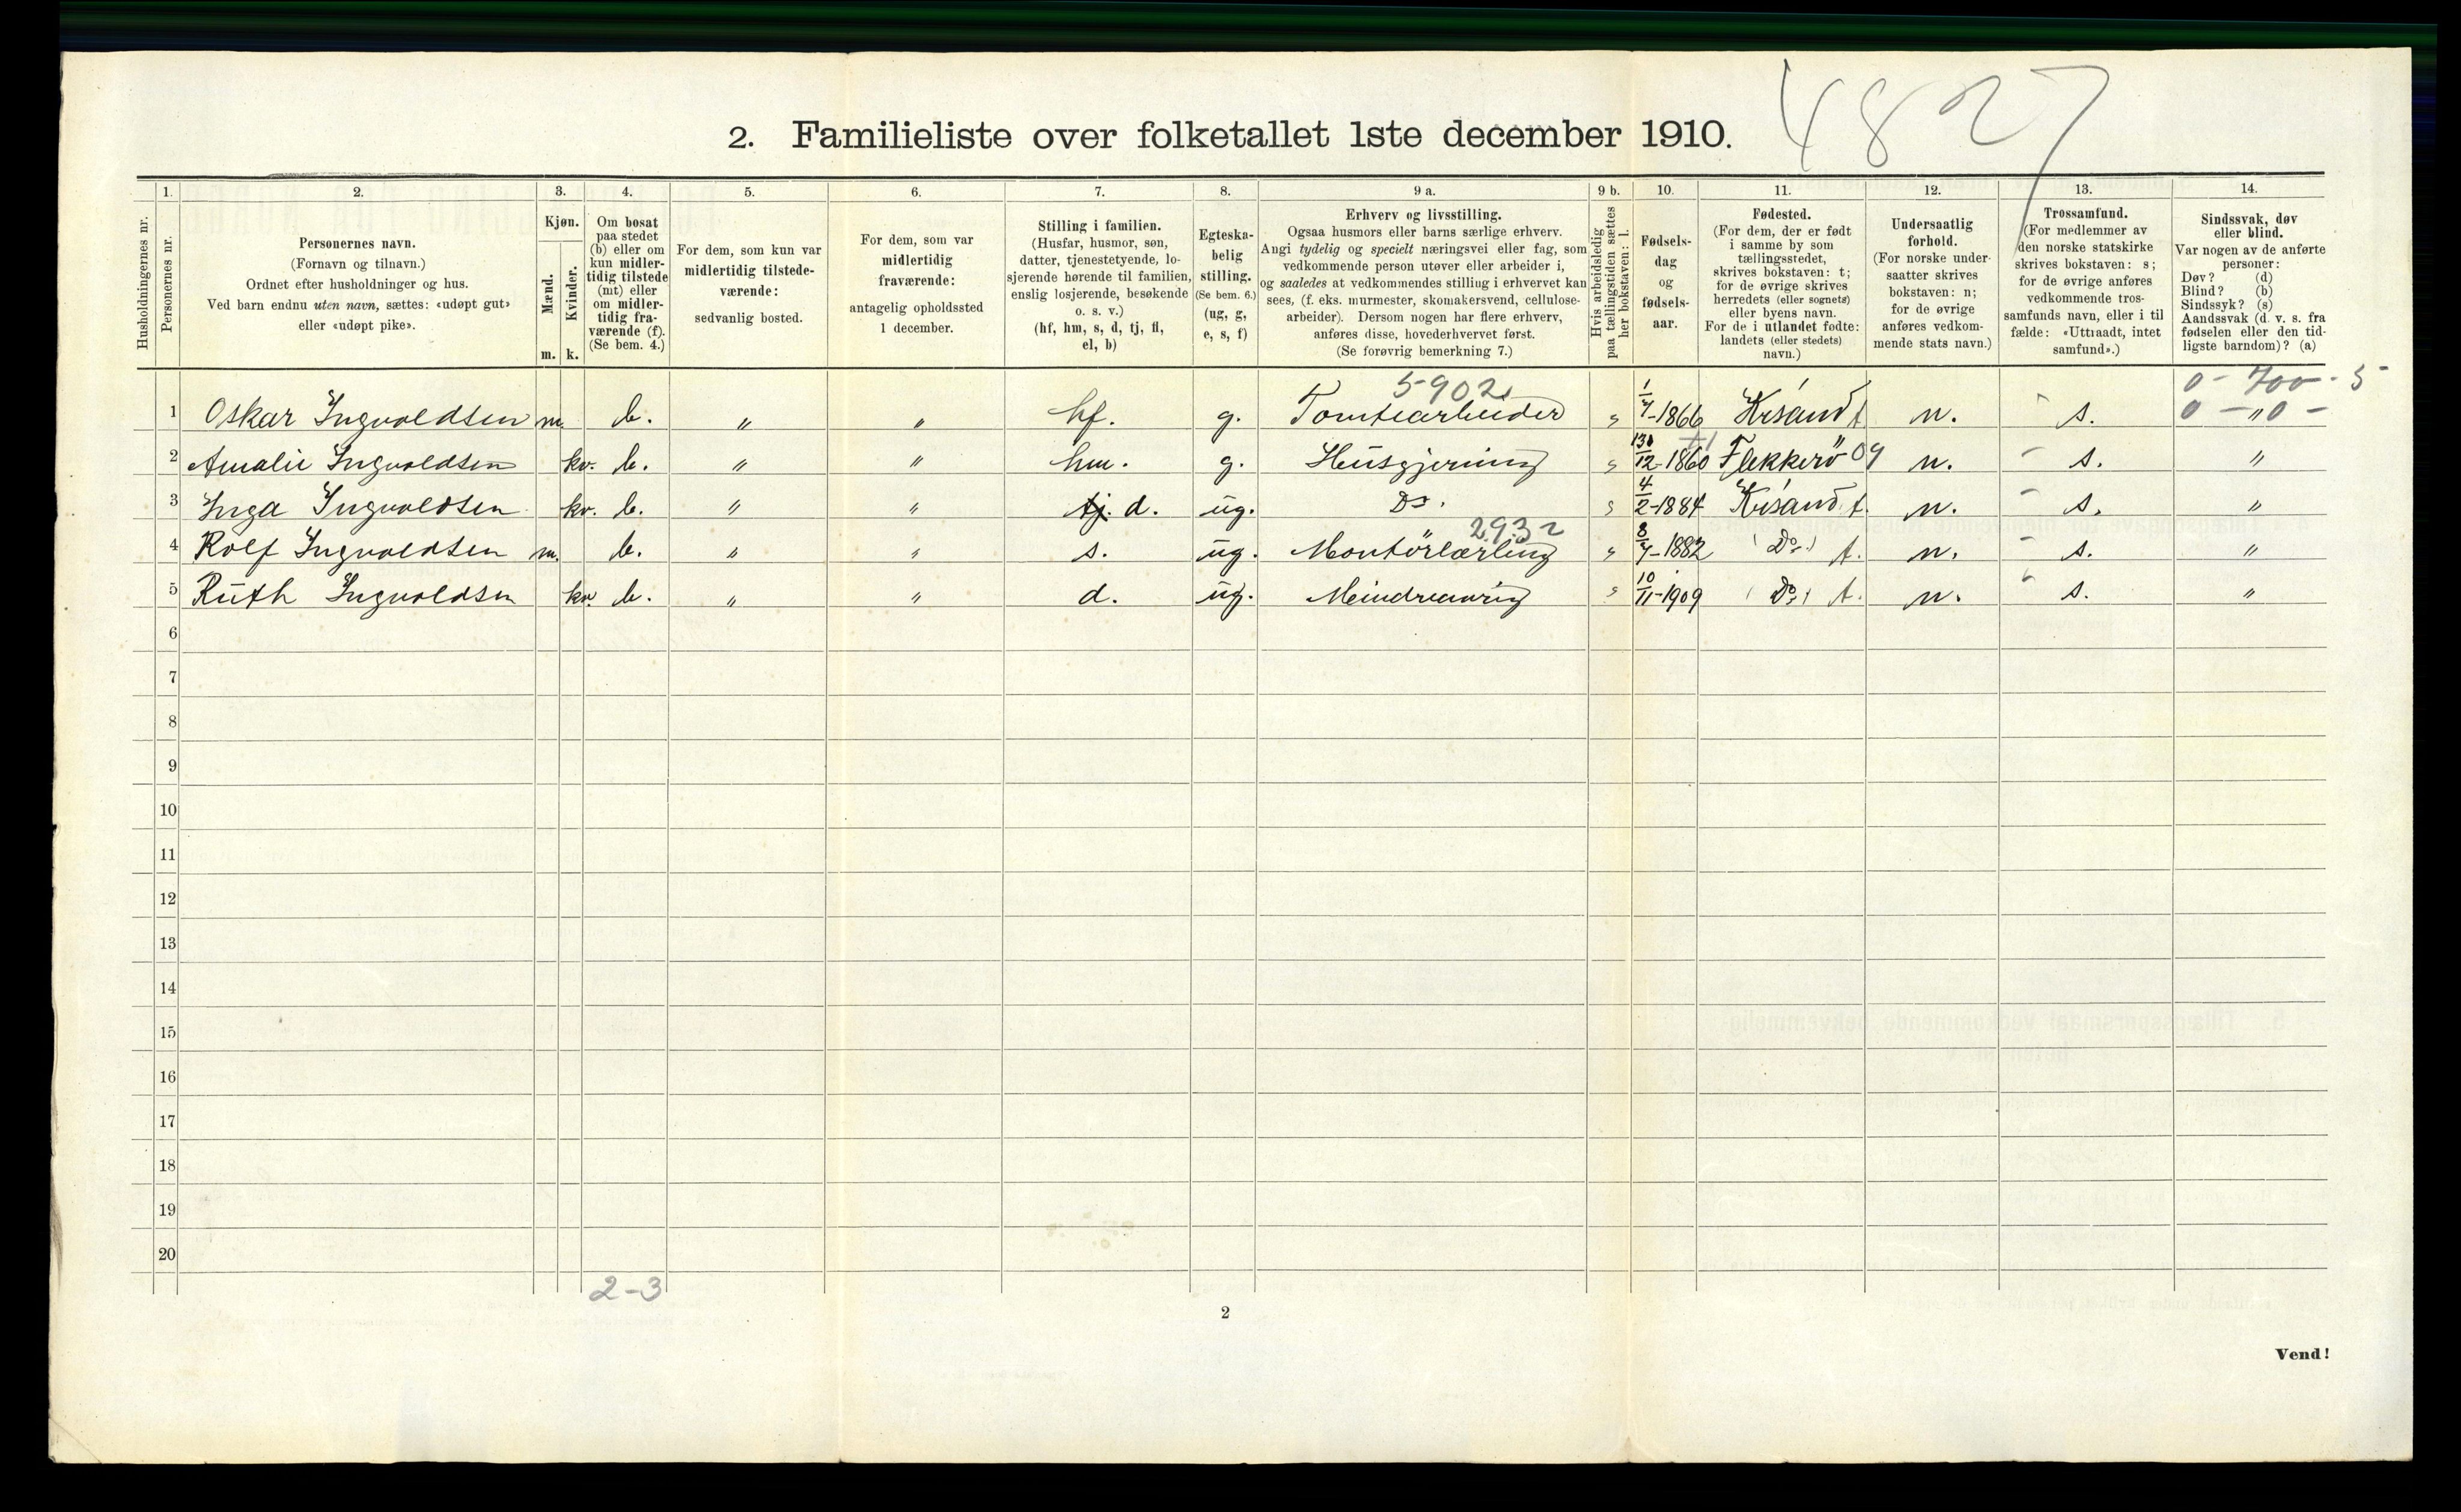 4827
2. Familieliste over folketallet 1ste december 1910.
1. 2. 3. 4. 5. 6. 7. 8. 9 a. 9 b. 10. 11. 12. 13. 14.
Husholdningernes nr.
Personernes nr.
Personernes navn.
(Fornavn og tilnavn.)
Ordnet efter husholdninger og hus.
Ved barn endnu uten navn, sættes: «udøpt gut»
eller «udøpt pike».
Kjøn.
Mænd.
Kvinder.
m. k.
Om bosat
paa stedet
(b) eller om
kun midler-
tidig tilstede
(mt) eller
om midler-
tidig fra-
værende (f).
(Se bem. 4.)
For dem, som kun var
midlertidig tilstede-
værende:
sedvanlig bosted.
For dem, som var
midlertidig
fraværende:
antagelig opholdssted
1 december.
Stilling i familien.
(Husfar, husmor, søn,
datter, tjenestetyende, lo-
sjerende hørende til familien,
enslig losjerende, besøkende
o. s. v.)
(hf, hm, s, d, tj, fl,
el, b)
Egteska-
belig
stilling.
(Se bem. 6.)
(ug, g,
e, s, f)
Erhverv og livsstilling.
Ogsaa husmors eller barns særlige erhverv.
Angi tydelig og specielt næringsvei eller fag, som
vedkommende person utøver eller arbeider i,
og saaledes at vedkommendes stilling i erhvervet kan
sees, (f. eks. murmester, skomakersvend, cellulose-
arbeider). Dersom nogen har flere erhverv,
anføres disse, hovederhvervet først.
(Se forøvrig bemerkning 7.)
Hvis arbeidsledig
paa tællingstiden sættes
her bokstaven: l.
Fødsels-
dag
og
fødsels-
aar.
Fødested.
(For dem, der er født
i samme by som
tællingsstedet,
skrives bokstaven: t;
for de øvrige skrives
herredets (eller sognets)
eller byens navn.
For de i utlandet fødte:
landets (eller stedets)
navn.)
Undersaatlig
forhold.
(For norske under-
saatter skrives
bokstaven: n;
for de øvrige
anføres vedkom-
mende stats navn.)
Trossamfund.
(For medlemmer av
den norske statskirke
skrives bokstaven: s;
for de øvrige anføres
vedkommende tros-
samfunds navn, eller i til
fælde: «Uttraadt, intet
samfund».)
Sindssvak, døv
eller blind.
Var nogen av de anførte
personer:
Døv? (d)
Blind? (b)
Sindssyk? (s)
Aandssvak (d. v. s. fra
fødselen eller den tid-
ligste barndom)? (a)
5902 0 - 700 - 5
1 Oskar Ingvoldsen m. b. " " hf. g. Tomtearbeider " 1/7-1866 Krsand t. n. s. 0 - "0 -
2 Amalie Ingvoldsen kv. b. " " hm. g. Husgjerning " 12-1860 Flekkerö 09 n. s. "
3 Inga Ingvoldsen kv. b. " " tj. d. ug. Do. " 4/2-1884 Krsand t. n. s. "
2932
4 Rolf Ingvoldsen m. b. " " s. ug. Montörlærling " 8/7-1882 Do. t. n. s. "
5 Ruth Ingvoldsen kv. b. " " d. ug. " 10/11-1909 Do. t. n. s. "
6
7
8
9
10
11
12
13
14
15
16
17
18
19
20
2-3
2
Vend!